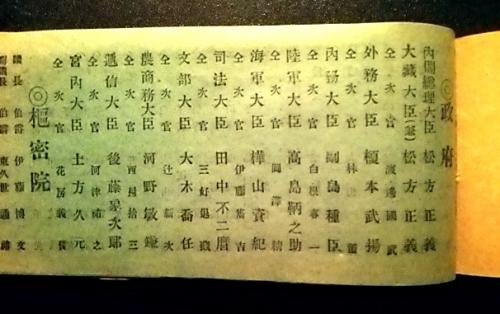 ◎政府
內閣總理大臣 松方正義
大藏大臣(兼) 松方正義
仝次官 渡邊國武
外務大臣 榎本武揚
仝次官 林董
內務大臣 副島種臣
仝次官 白根專一
陸軍大臣 高島鞆之助
仝次官 岡澤精
海軍大臣 樺山資紀
仝次官 伊藤吉
司法大臣 田中不二麿
仝次官 三好退藏
文部大臣 大木喬任
仝次官 辻新次
農商務大臣 河野敏鎌
仝次官 西村捨三
遞信大臣 後藤象次郎
仝次官 河津祐之
宮內大臣 土方久元
仝次官 花房義質
◎樞密院
議長 伯爵 伊藤博文
副議長 伯爵 東久世通禧